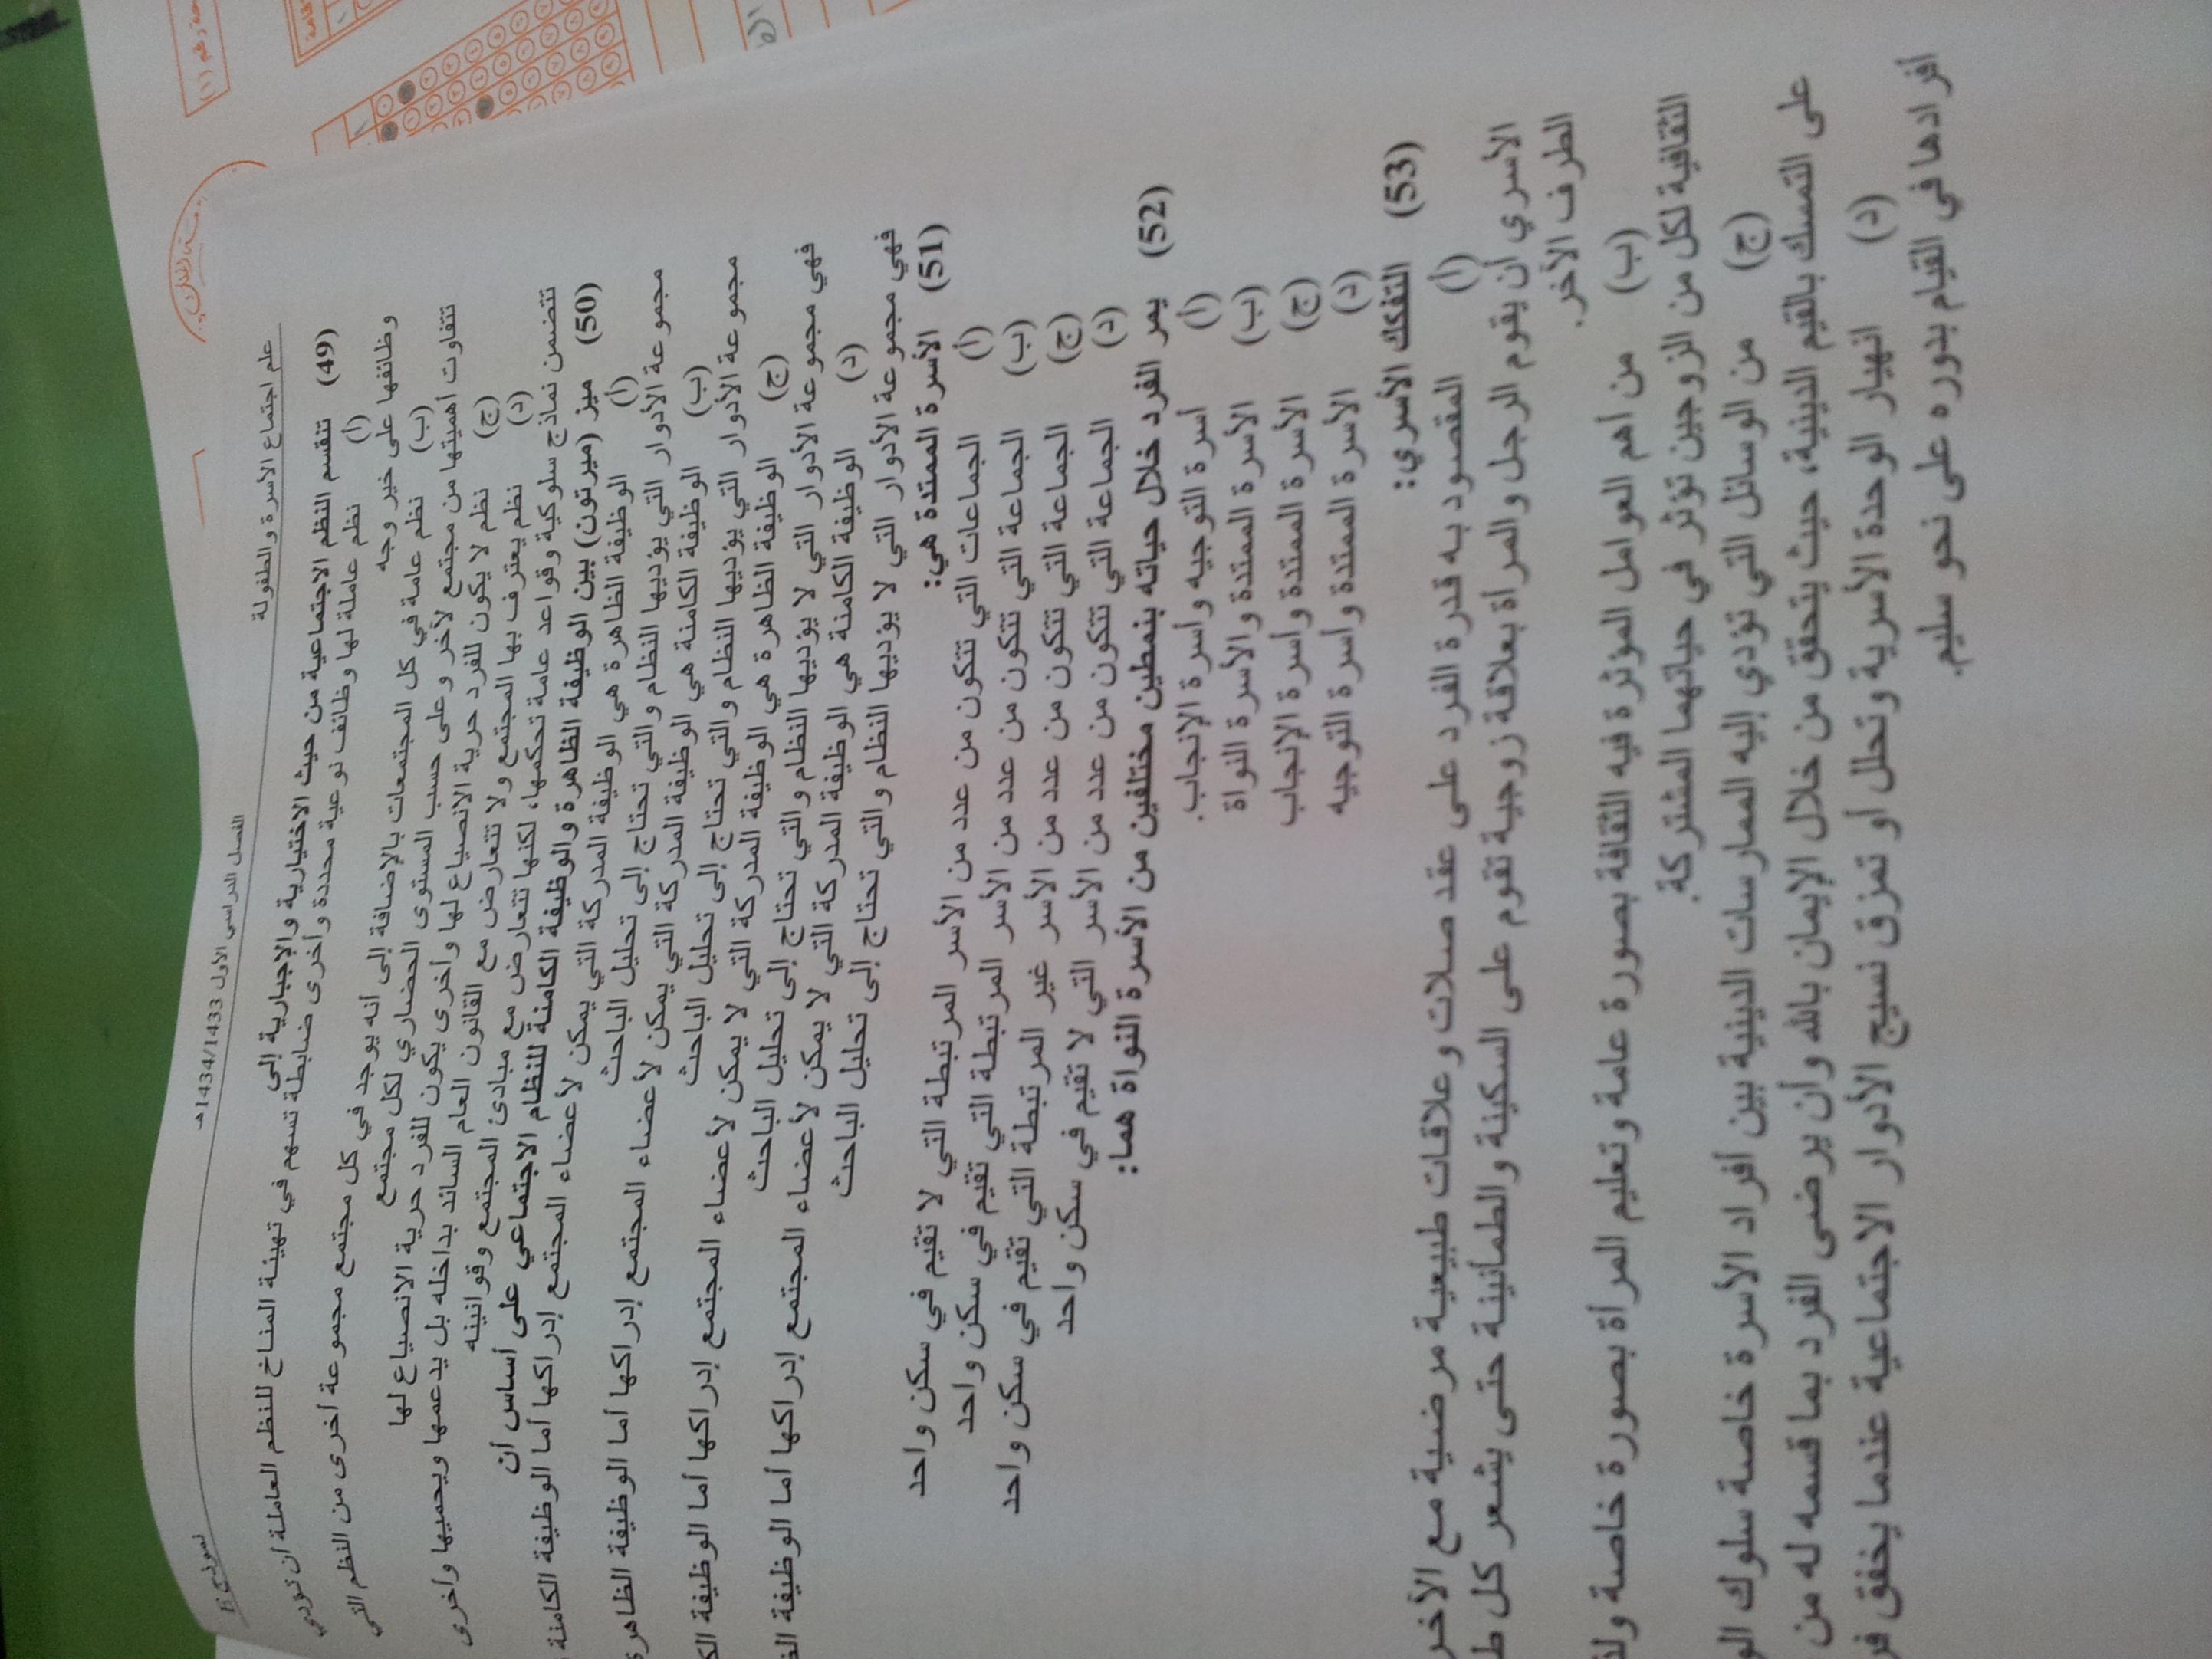 علم اجتماع الأسرة والطفولة
الفصل الدراسي الأول 1434/1433هـ
نموذج E
(49) تنقسم النظم الاجتماعية من حيث الاختيارية والإجبارية إلى
(أ) نظم عاملة لها وظائف نوعية محددة وأخرى ضابطة تسهم في تهيئة المناخ للنظم العاملة أن تؤدي
وظائفها على خير وجه
(ب) نظم عامة في كل المجتمعات بالإضافة إلى أنه يوجد في كل مجتمع مجموعة أخرى من النظم التي
تتفاوت أهميتها من مجتمع لآخر وعلى حسب المستوى الحضاري لكل مجتمع
(ج) نظم لا يكون للفرد حرية الانصياع لها وأخرى يكون للفرد حرية الانصياع لها
(د) نظم يعترف بها المجتمع ولا تتعارض مع القانون العام السائد بداخله بل يدعمها ويحميها وأخرى
تتضمن نماذج سلوكية وقواعد عامة تحكمها، لكنها تتعارض مع مبادئ المجتمع وقوانينه
(50) ميز (ميرتون) بين الوظيفة الظاهرة والوظيفة الكامنة للنظام الاجتماعي على أساس أن
(أ) الوظيفة الظاهرة هي الوظيفة المدركة التي يمكن لأعضاء المجتمع إدراكها أما الوظيفة الكامنة
مجموعة الأدوار التي يؤديها النظام والتي تحتاج إلى تحليل الباحث
(ب) الوظيفة الكامنة هي الوظيفة المدركة التي يمكن لأعضاء المجتمع إدراكها أما الوظيفة الظاهرة
مجموعة الأدوار التي يؤديها النظام والتي تحتاج إلى تحليل الباحث
(ج) الوظيفة الظاهرة هي الوظيفة المدركة التي لا يمكن لأعضاء المجتمع إدراكها أما الوظيفة
فهي مجموعة الأدوار التي لا يؤديها النظام والتي تحتاج إلى تحليل الباحث
(د) الوظيفة الكامنة هي الوظيفة المدركة التي لا يمكن لأعضاء المجتمع إدراكها أما الوظيفة
فهي مجموعة الأدوار التي لا يؤديها النظام والتي تحتاج إلى تحليل الباحث
(51) الأسرة الممتدة هي:
(أ) الجماعات التي تتكون من عدد من الأسر المرتبطة التي لا تقيم في سكن واحد
(ب) الجماعة التي تتكون من عدد من الأسر المرتبطة التي تقيم في سكن واحد
(ج) الجماعة التي تتكون من عدد من الأسر غير المرتبطة التي تقيم في سكن واحد
(د) الجماعة التي تتكون من عدد من الأسر التي لا تقيم في سكن واحد
(52) يمر الفرد خلال حياته بنمطين مختلفين من الأسرة النواة هما:
(أ) أسرة التوجيه وأسرة الإنجاب.
(ب) الأسرة الممتدة والأسرة النواة
(ج) الأسرة الممتدة وأسرة الإنجاب
(د) الأسرة الممتدة وأسرة التوجيه
(53) التفكك الأسري:
(أ) المقصود به قدرة الفرد على عقد صلات وعلاقات طبيعية مرضية مع الآخر
الأسري أن يقوم الرجل والمرأة بعلاقة زوجية تقوم على السكينة والطمأنينة حتى يشعر كل
الطرف الآخر.
(ب) من أهم العوامل المؤثرة فيه الثقافة بصورة عامة وتعليم المرأة بصورة خاصة
الثقافية لكل من الزوجين تؤثر في حياتهما المشتركة.
(ج) من الوسائل التي تؤدي إليه الممارسات الدينية بين أفراد الأسرة خاصة سلوك
على التمسك بالقيم الدينية، حيث يتحقق من خلال الإيمان بالله وأن يرضى الفرد بما قسمه له من
(د) انهيار الوحدة الأسرية وتحلل أو تمزق نسيج الأدوار الاجتماعية عندما يخفق
أفرادها في القيام بدوره على نحو سليم.